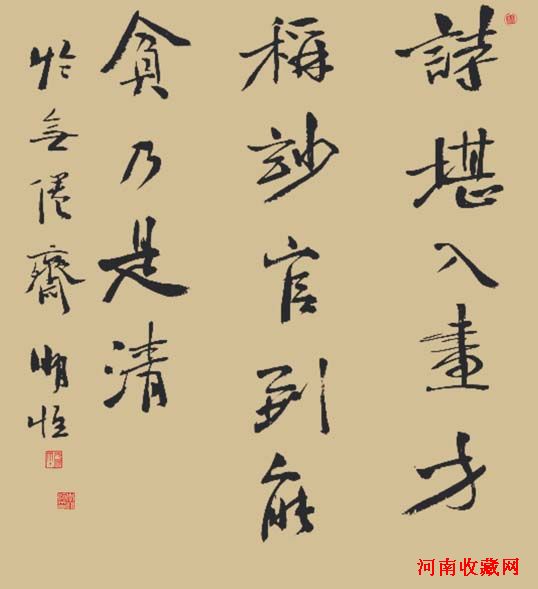 詩堪入畫方
稱玅官到能
貧乃是清
於無倦齋 明恒
河南收藏网